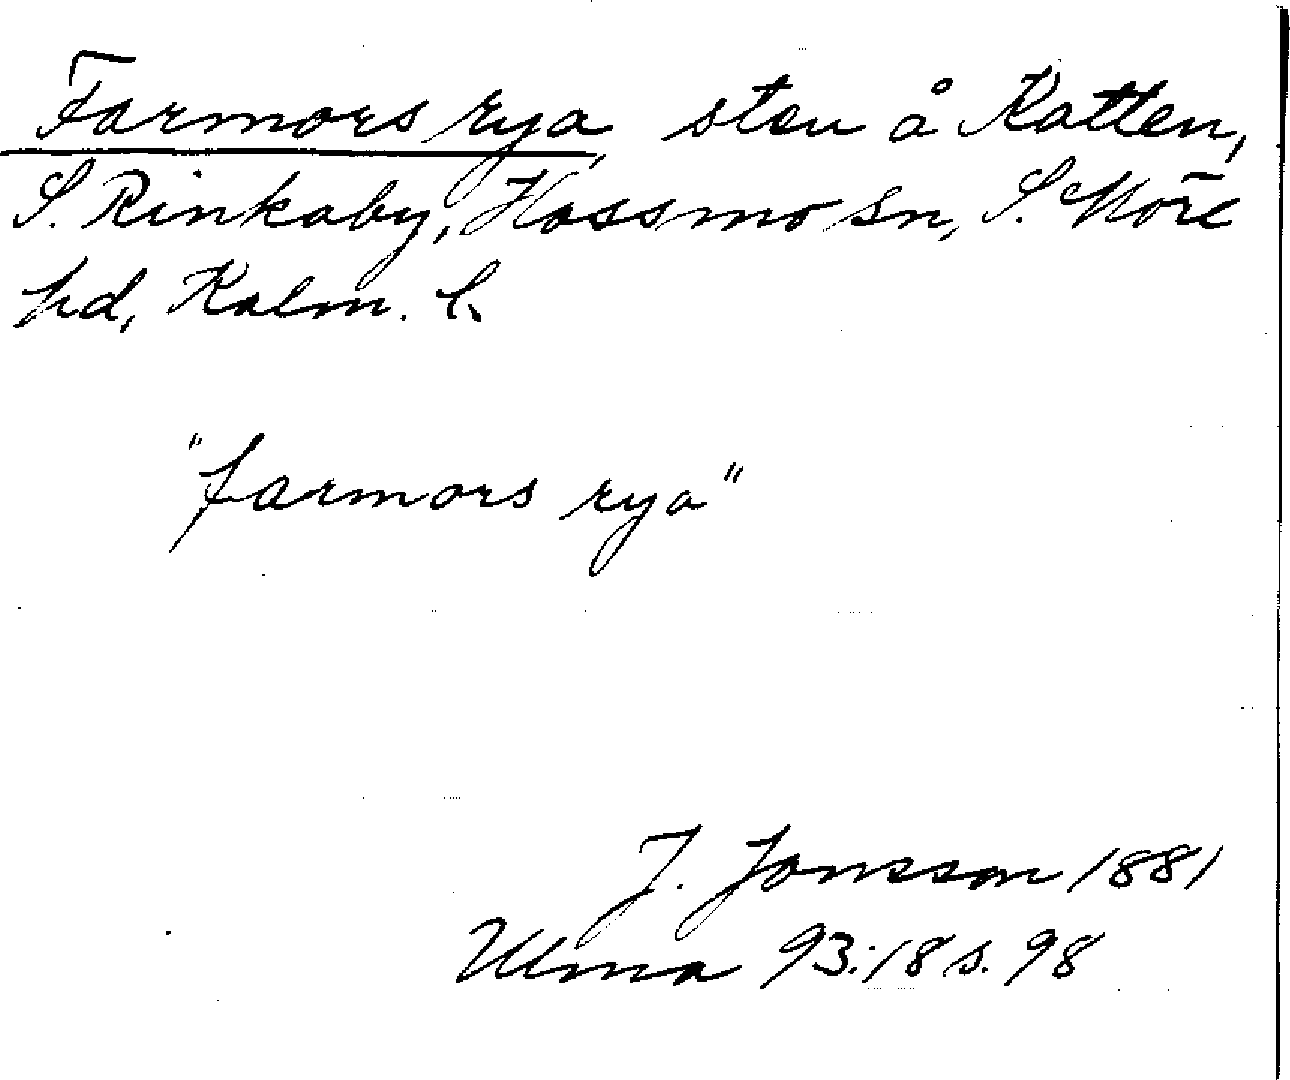 Farmors rya, sten å Katten,
S. Rinkaby, Hossmo sn, S. Möre
hd, Kalm. l.
"farmors rya"
J. Jonsson 1881
Ulma 93:18 s. 98